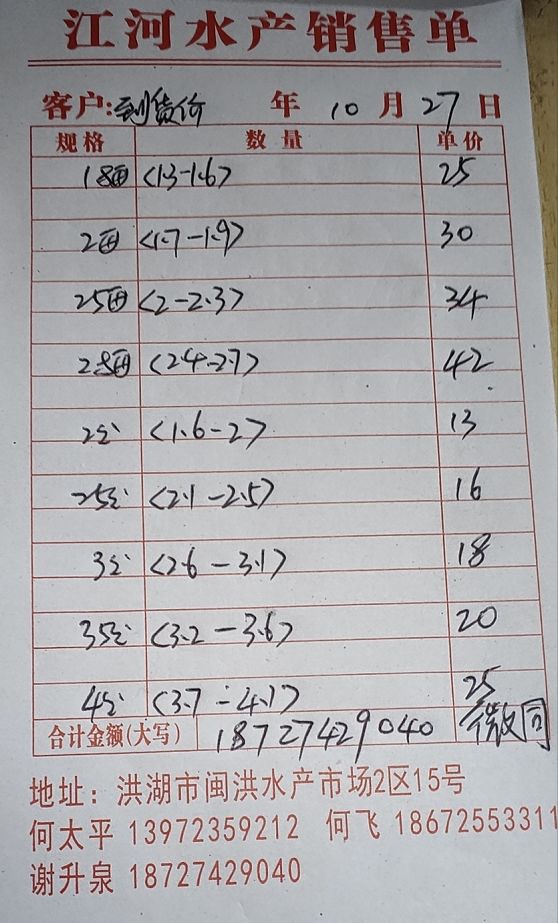 江河水产销售单
客户:到货价 年 10 月 27 日
规格 数量 单价
1.8母 <1.3-1.6> 25
2母 <1.7-1.9> 30
25母 <2-2.3> 34
2.8母 <2.4-2.7> 42
2公 <1.6-2> 13
25公 <2.1-2.5> 16
3公 <2.6-3.1> 18
35公 <3.2-3.6> 20
4公 <3.7-4.1> 25
合计金额(大写) 18727429040 微同
地址：洪湖市闽洪水产市场2区15号
何太平 13972359212 何飞 18672553311
谢升泉 18727429040